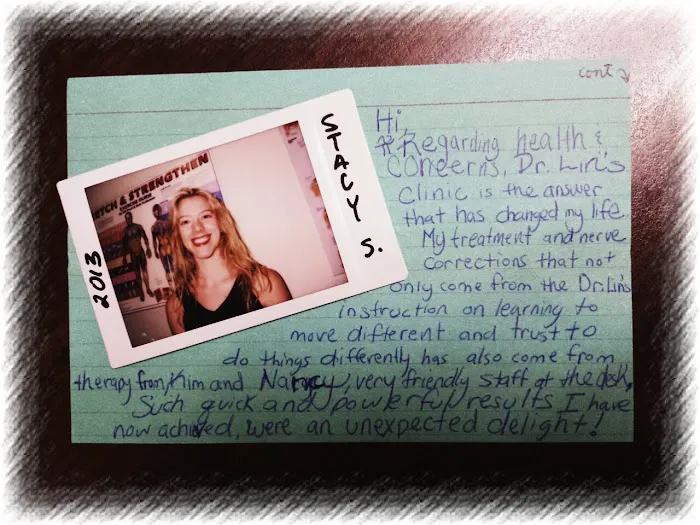 cont
Hi,
Regarding health &
concerns, Dr. Lin's
Clinic is the answer
that has changed my life.
My treatment and nerve
corrections that not
only come from the Dr. Lin's
instruction on learning to
move different and trust to
do things differently has also come from
therapy from, Kim and Nancy, very friendly staff at the desk,
Such quick and powerful results I have
now achieved, were an unexpected delight!
STACY S.
2013
ETCH & STRENGTHEN